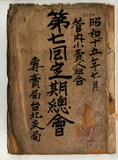 昭和十五年七月
管内小賣人組合
第七回定期總會
專賣局台北支局